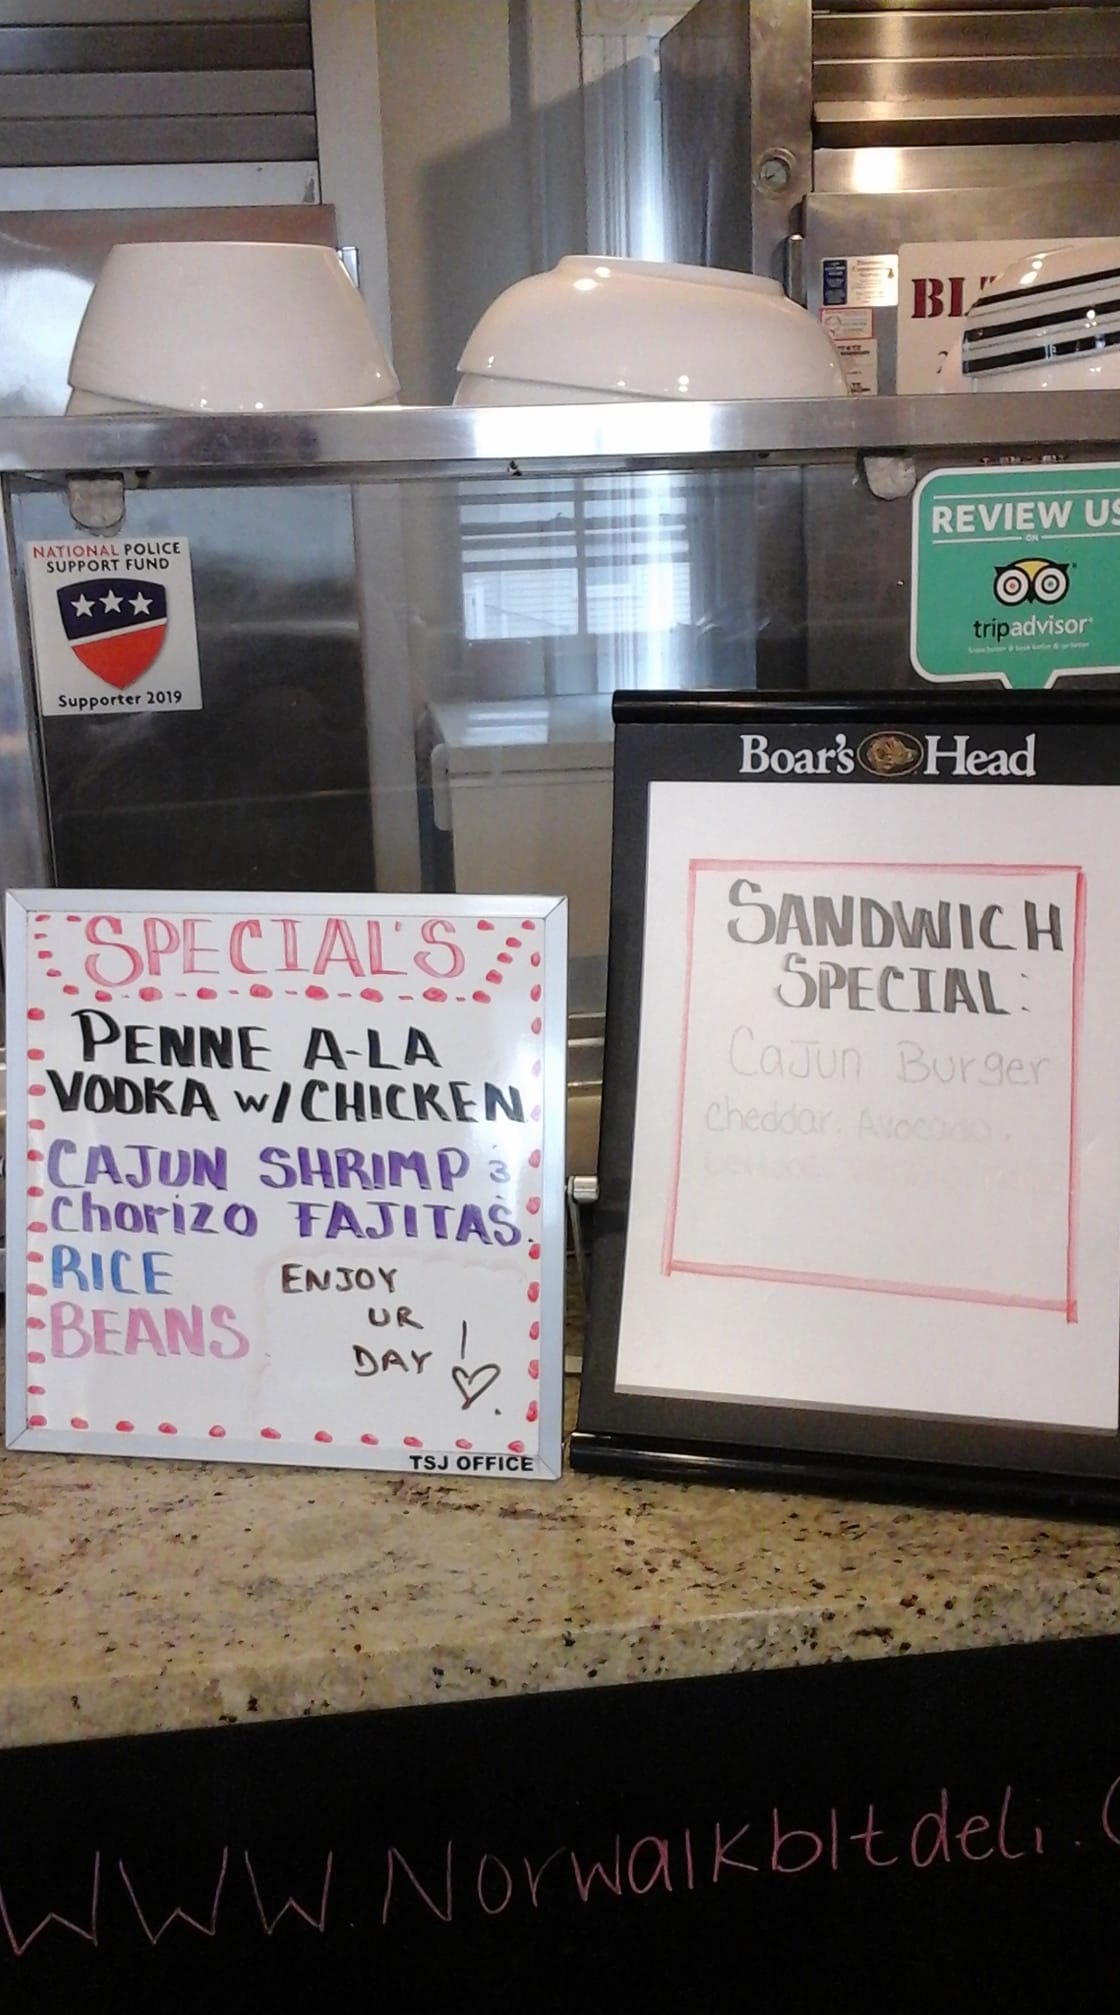 BL
NATIONAL POLICE
SUPPORT FUND
Supporter 2019
REVIEW US
ON
tripadvisor
Boar's Head
SPECIAL'S
PENNE A-LA
VODKA W/CHICKEN
CAJUN SHRIMP &
Chorizo FAJITAS.
RICE
BEANS
ENJOY
UR
DAY !
TSJ OFFICE
SANDWICH
SPECIAL:
Cajun Burger
Cheddar. Avocado.
WWW.Norwalkbltdeli.